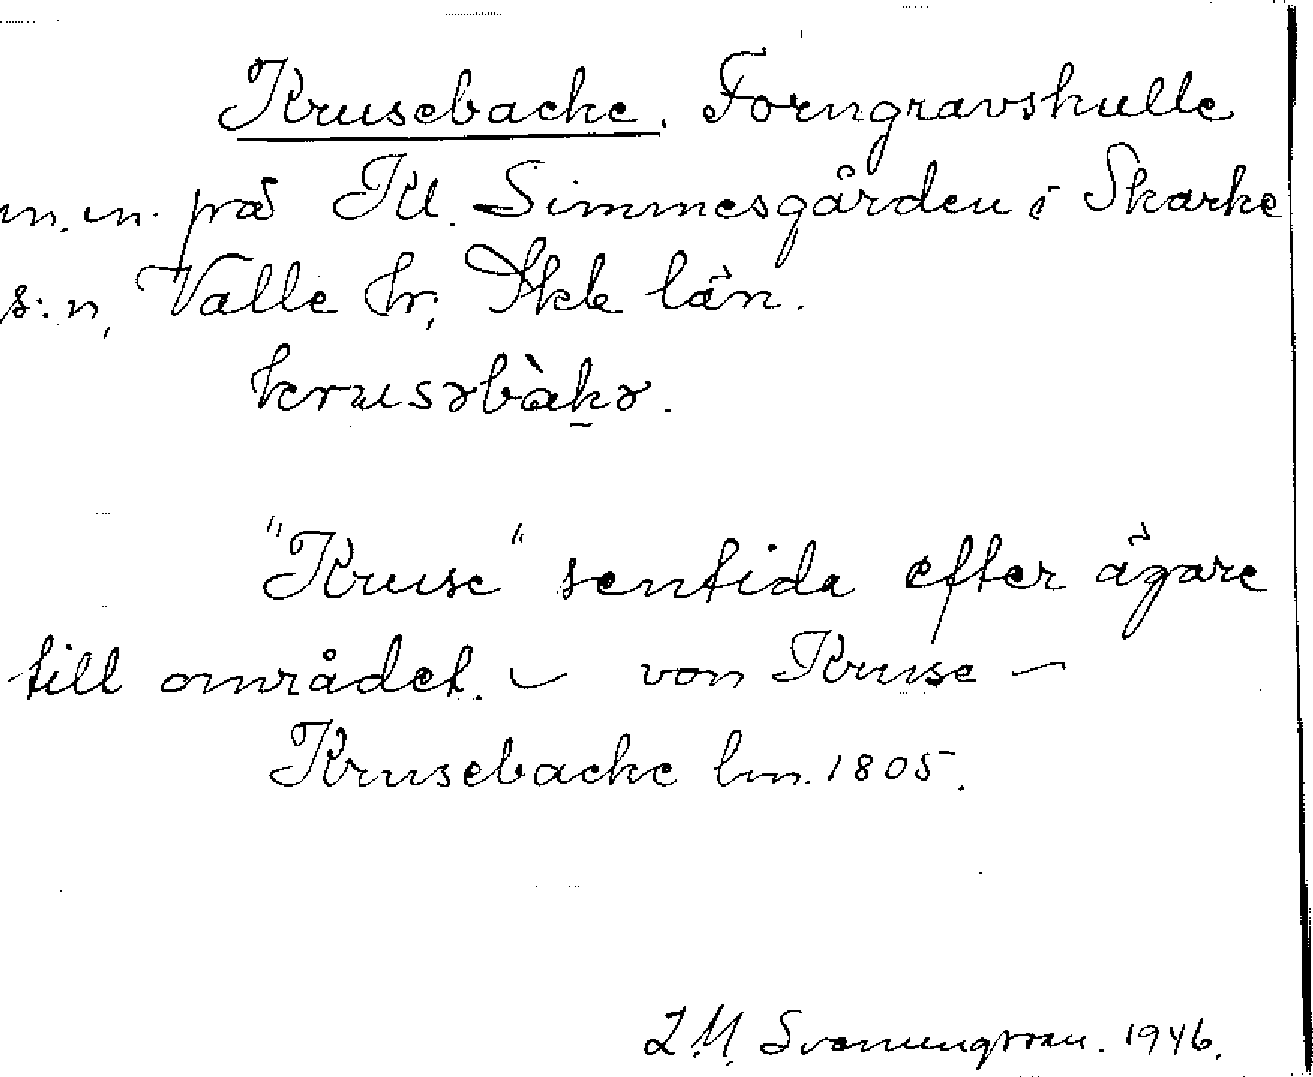 Krusebacke. Forngravskulle
m.m. på Kl. Simmesgården i Skarke
s:n, Valle hr, Skb län.
krusəbàkə.
"Kruse" sentida efter ägare
till området. – von Kruse –
Krusebacke lm. 1805.
1946.